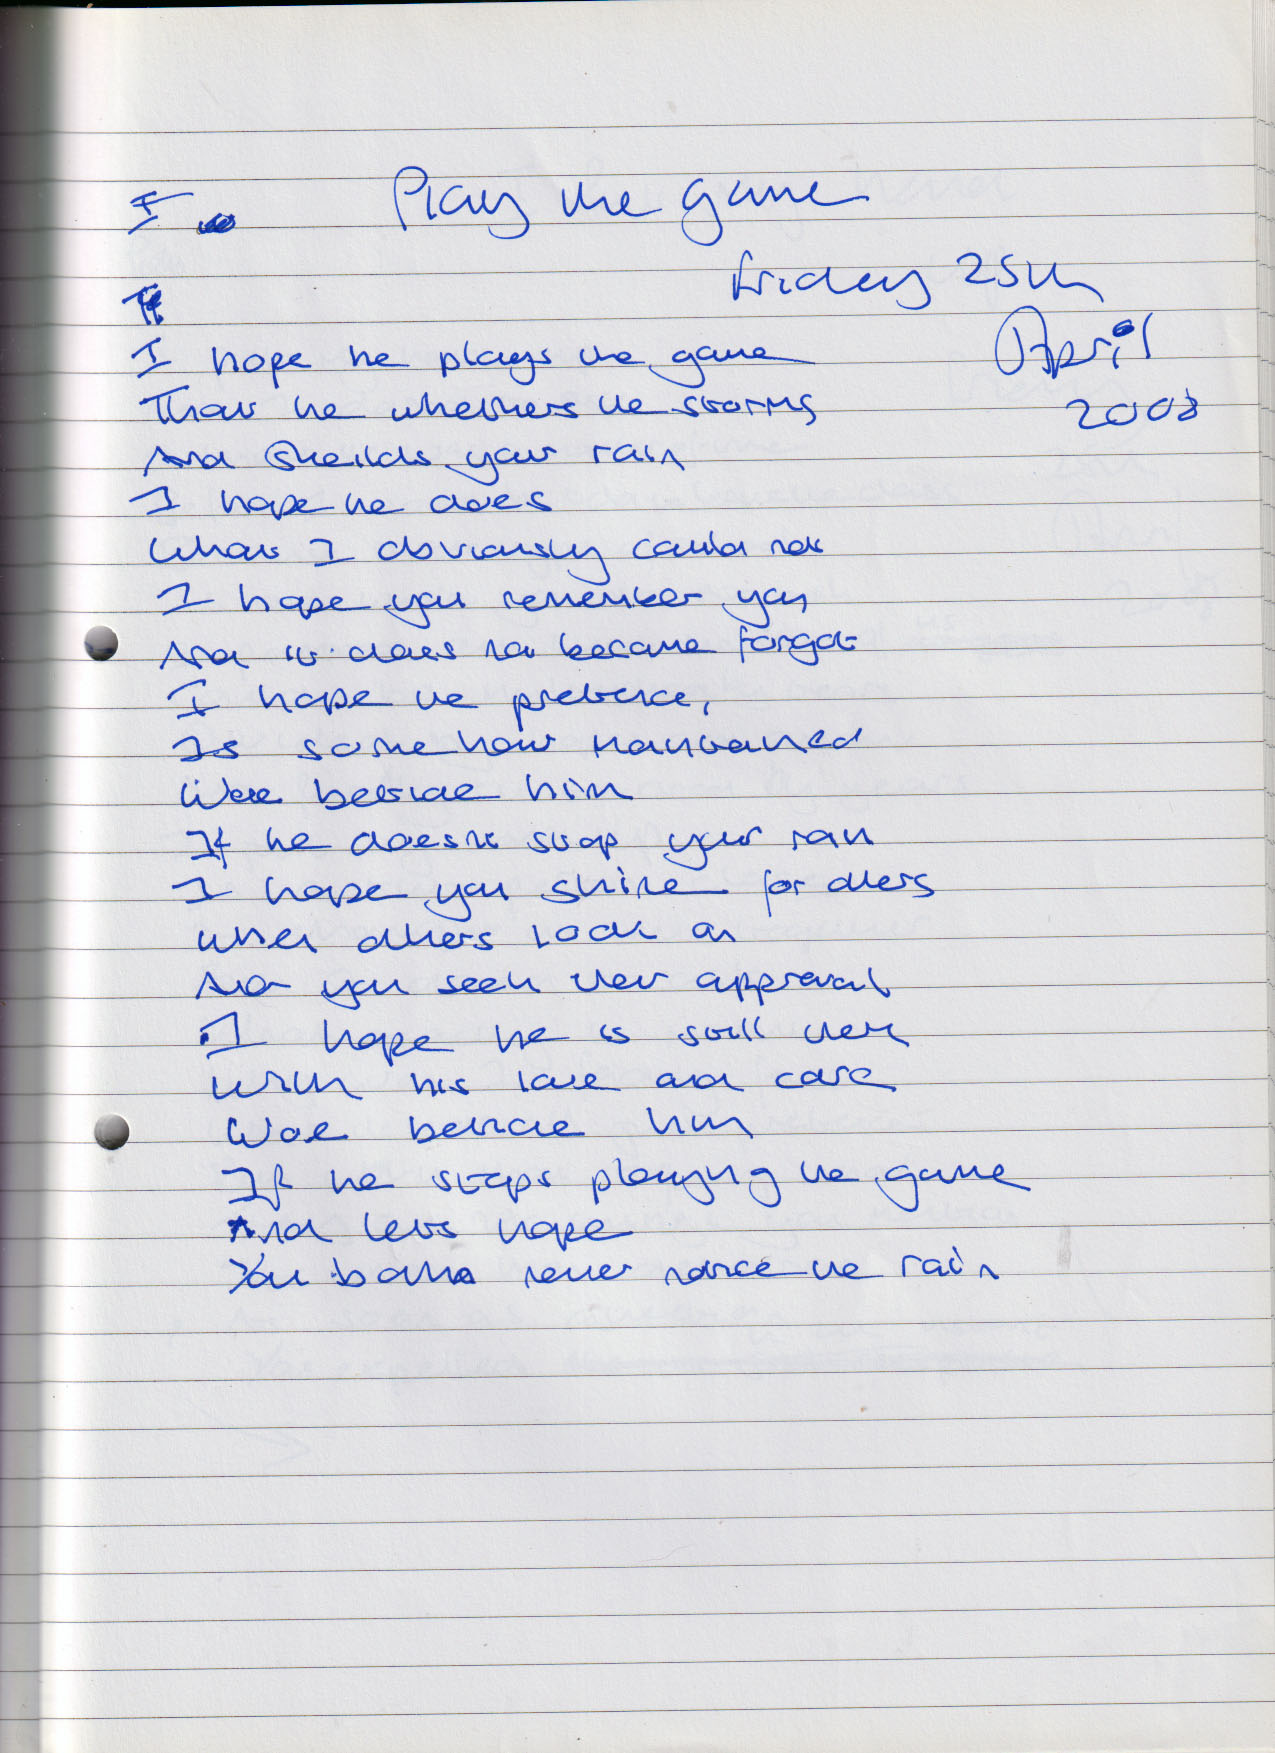 I
Play the game
Friday 25th
April
2008
I hope he plays the game
That he whethers the storms
And Sheilds your rain
I hope he does
What I obviously could not
I hope you remember you
And it does not become forgot
I hope the pretence,
Is somehow maintained
Woe betide him
If he doesnt stop your rain
I hope you shine for others
When others look on
And you seek their approval
I hope he is still there
With his love and care
Woe betide him
If he stops playing the game
And lets hope
You both never notice the rain